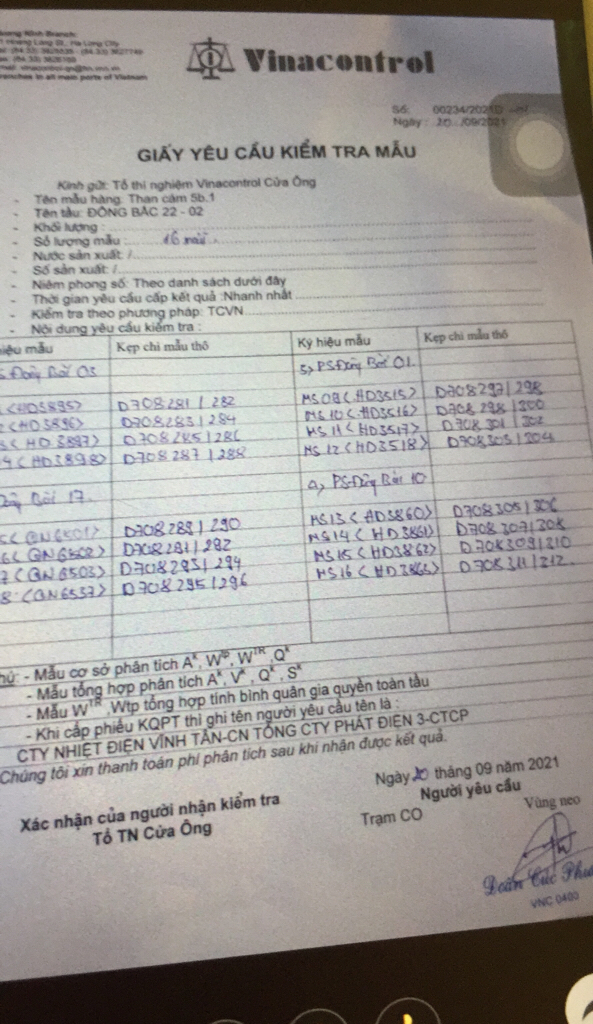 Vinacontrol
Số: 00234/2021D
Ngày : 20 /09/2021
GIẤY YÊU CẦU KIỂM TRA MẪU
Kính gửi: Tổ thí nghiệm Vinacontrol Cửa Ông
- Tên mẫu hàng: Than cám 5b.1
- Tên tàu: ĐÔNG BẮC 22 - 02
- Khối lượng :
- Số lượng mẫu : 16 mẫu
- Nước sản xuất: /
- Số sản xuất: /
- Niêm phong số: Theo danh sách dưới đây
- Thời gian yêu cầu cấp kết quả :Nhanh nhất
- Kiểm tra theo phương pháp: TCVN
- Nội dung yêu cầu kiểm tra :
hiệu mẫu Kẹp chì mẫu thô Ký hiệu mẫu Kẹp chì mẫu thô
(HD3895) D708281 / 282 MS 09 (HD3515) D708297 / 298
(HD3896) D708283 / 284 MS 10 (HD3516)
(HD3897) D708285 / 286 MS 11 (HD3517) D708301 / 302
(HD3898) D708287 / 288 MS 12 (HD3518)
(QN6501) D708289 / 290 MS13 (HD3860) D708305 / 306
D708291 / 292 MS14 (HD3861) D708307 / 308
(QN6503) D708293 / 294 MS15 (HD3862) D708309 / 310
(QN6537) D708295 / 296 MS16 D708311 / 312
- Mẫu cơ sở phân tích Aᵏ, Wᵗᵖ, Wᵀᴿ, Qᵏ
- Mẫu tổng hợp phân tích Aᵏ, Vᵏ, Qᵏ, Sᵏ
- Mẫu Wᵀᴿ, Wtp tổng hợp tính bình quân gia quyền toàn tàu
- Khi cấp phiếu KQPT thì ghi tên người yêu cầu tên là :
CTY NHIỆT ĐIỆN VĨNH TÂN-CN TỔNG CTY PHÁT ĐIỆN 3-CTCP
Chúng tôi xin thanh toán phí phân tích sau khi nhận được kết quả.
Ngày 20 tháng 09 năm 2021
Xác nhận của người nhận kiểm tra Người yêu cầu
Tổ TN Cửa Ông Trạm CO Vùng neo
Doãn Cúc
VNC 0400